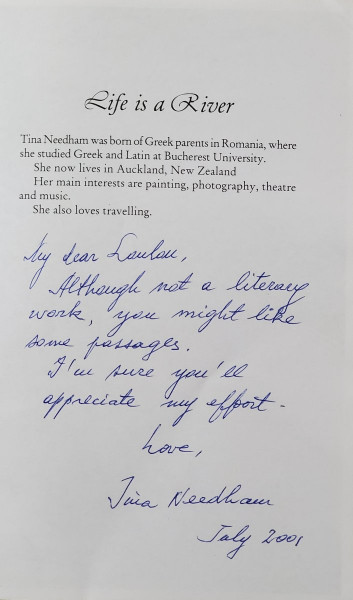 Life is a River
Tina Needham was born of Greek parents in Romania, where
she studied Greek and Latin at Bucherest University.
She now lives in Auckland, New Zealand
Her main interests are painting, photography, theatre
and music.
She also loves travelling.
My dear Loulou,
Although not a literary
work, you might like
some passages.
I'm sure you'll
appreciate my effort -
Love,
Tina Needham
July 2001